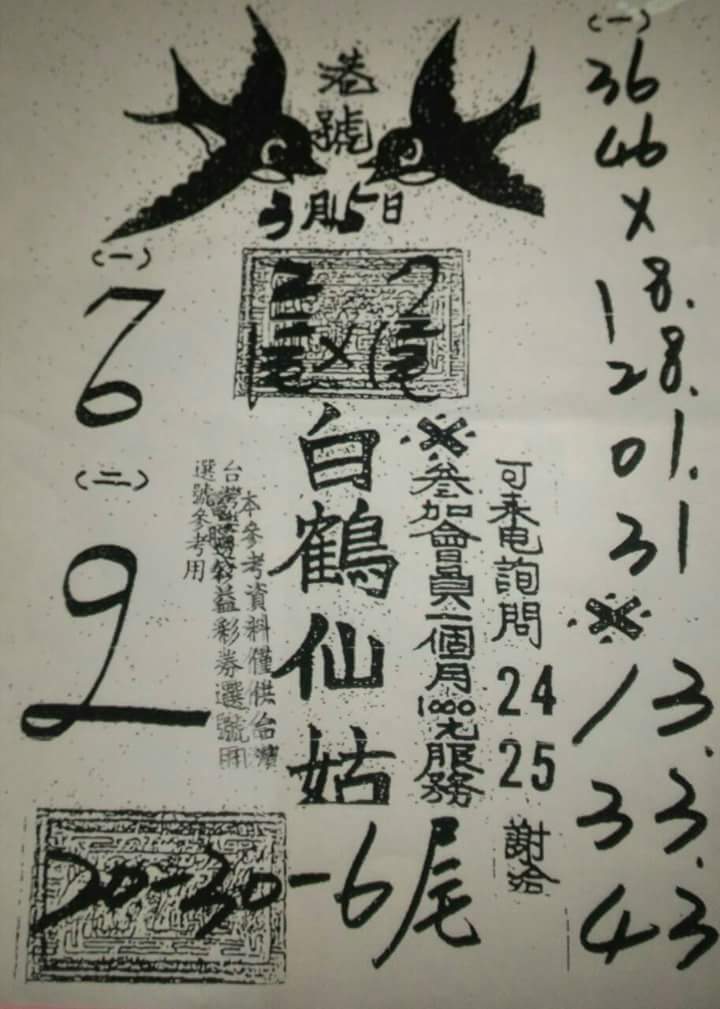 港號
3月15日
(一)
36
46
×
18.
28.
01.
31
※
13.
33.
43
(一)
6
(二)
2
尾×尾
白鶴仙姑
※參加會員一個月1000元服務
可來電詢問
24
25
謝哈
本參考資料僅供台灣
益彩券選號用
選號參考用
20-30-6尾